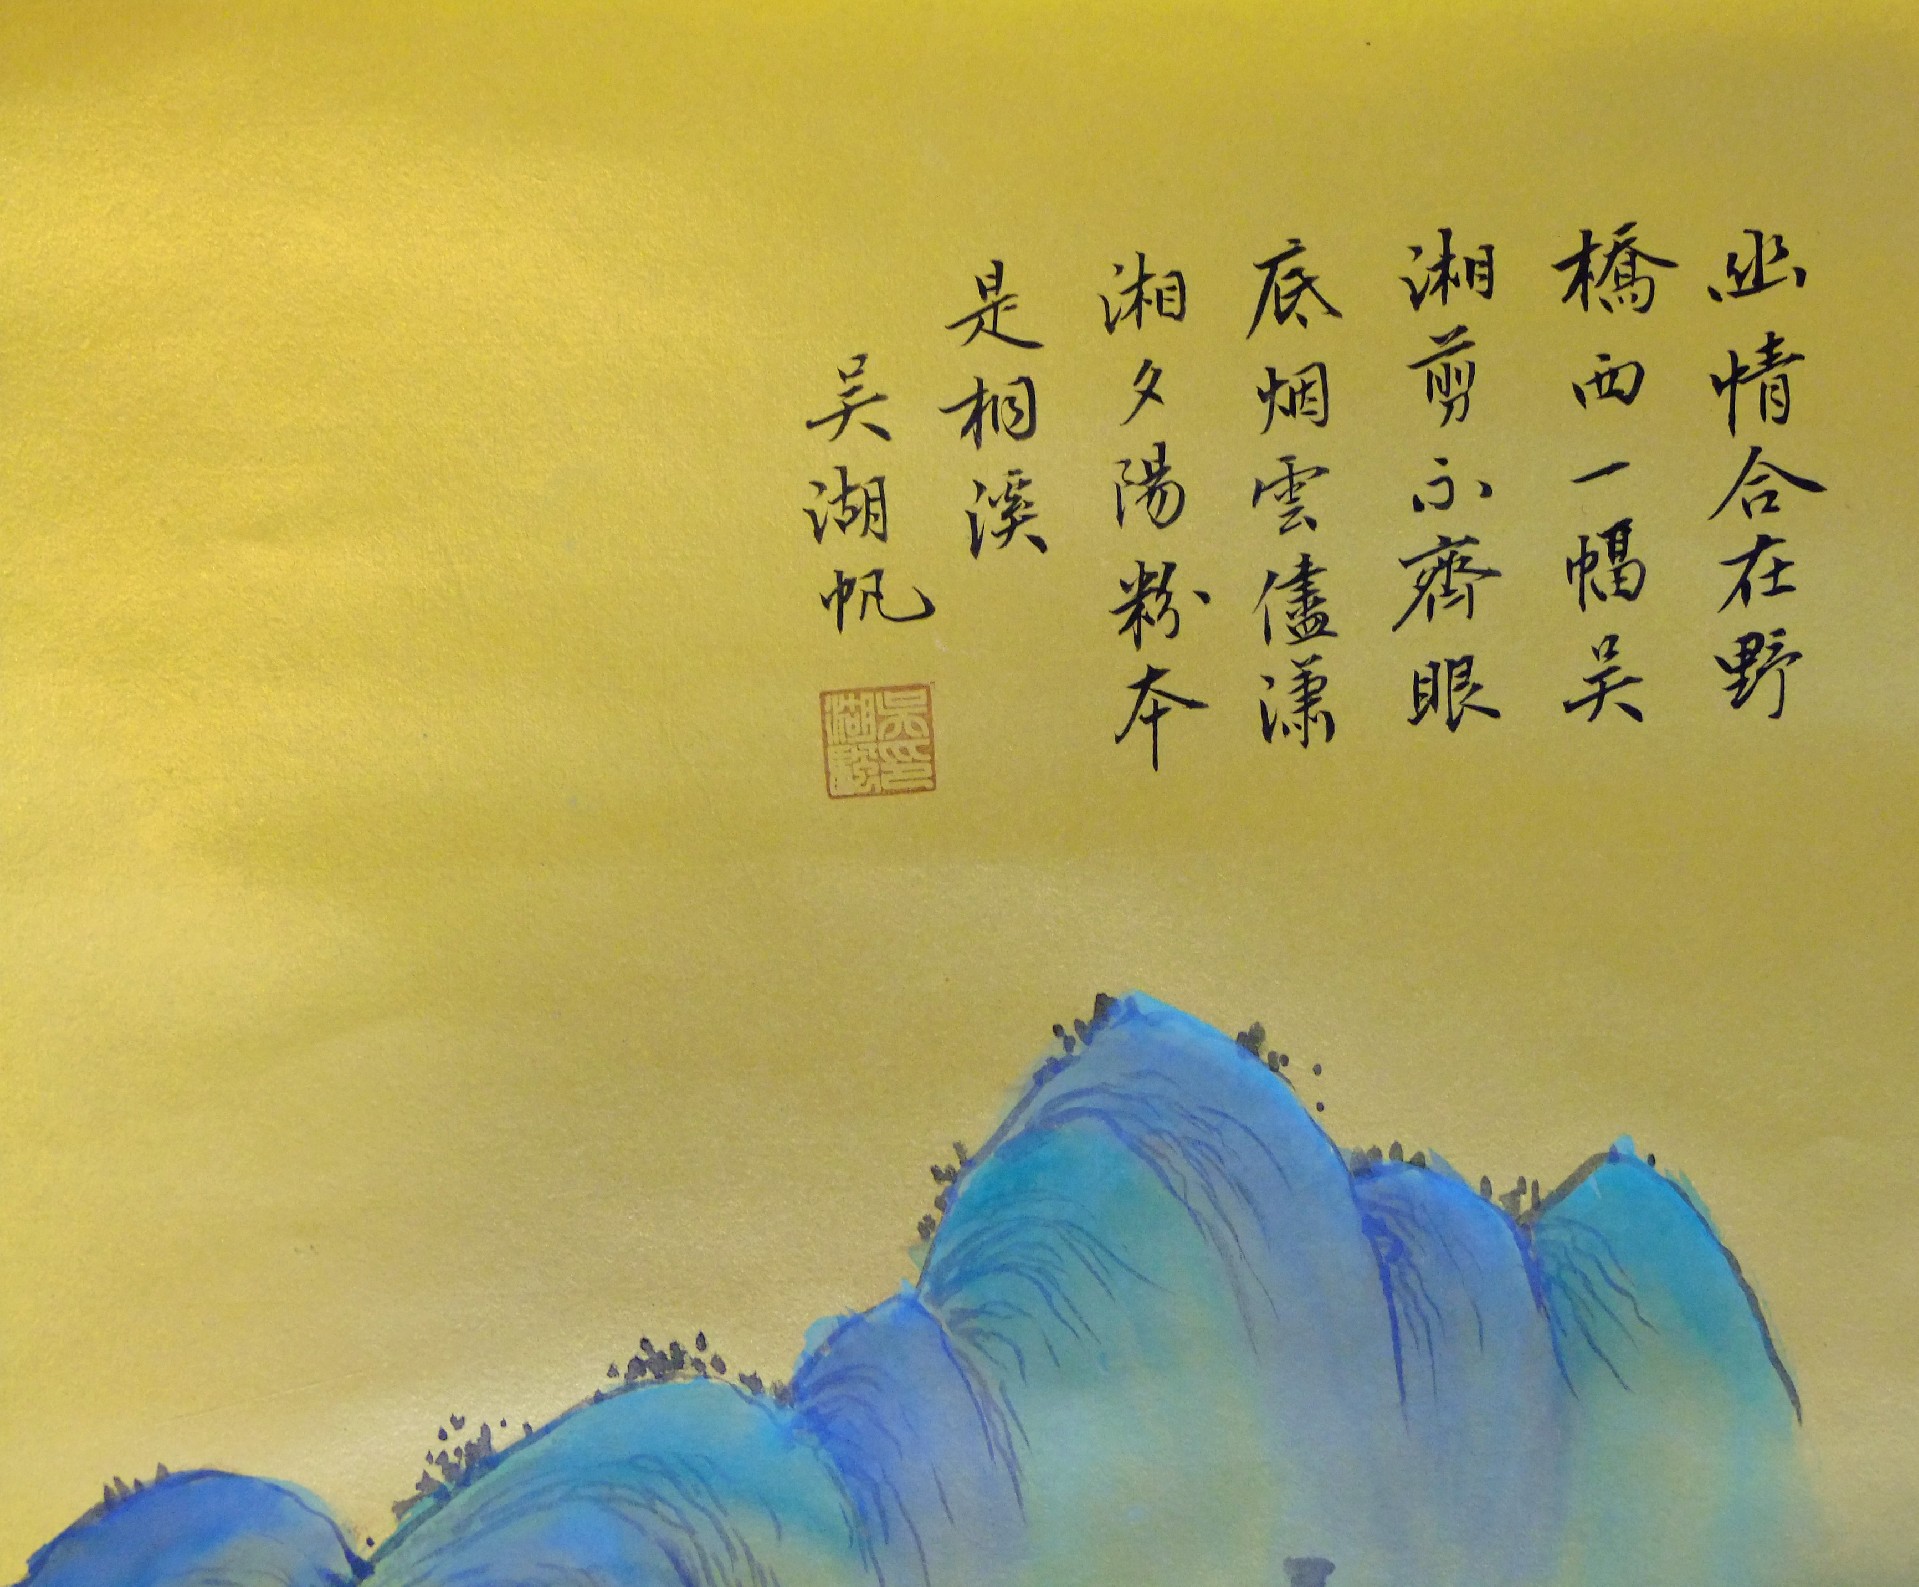 幽情合在野
橋西一幅吴
湘剪不齊眼
底烟雲儘瀟
湘夕陽粉本
是桐溪
吴湖帆
吴湖顒印